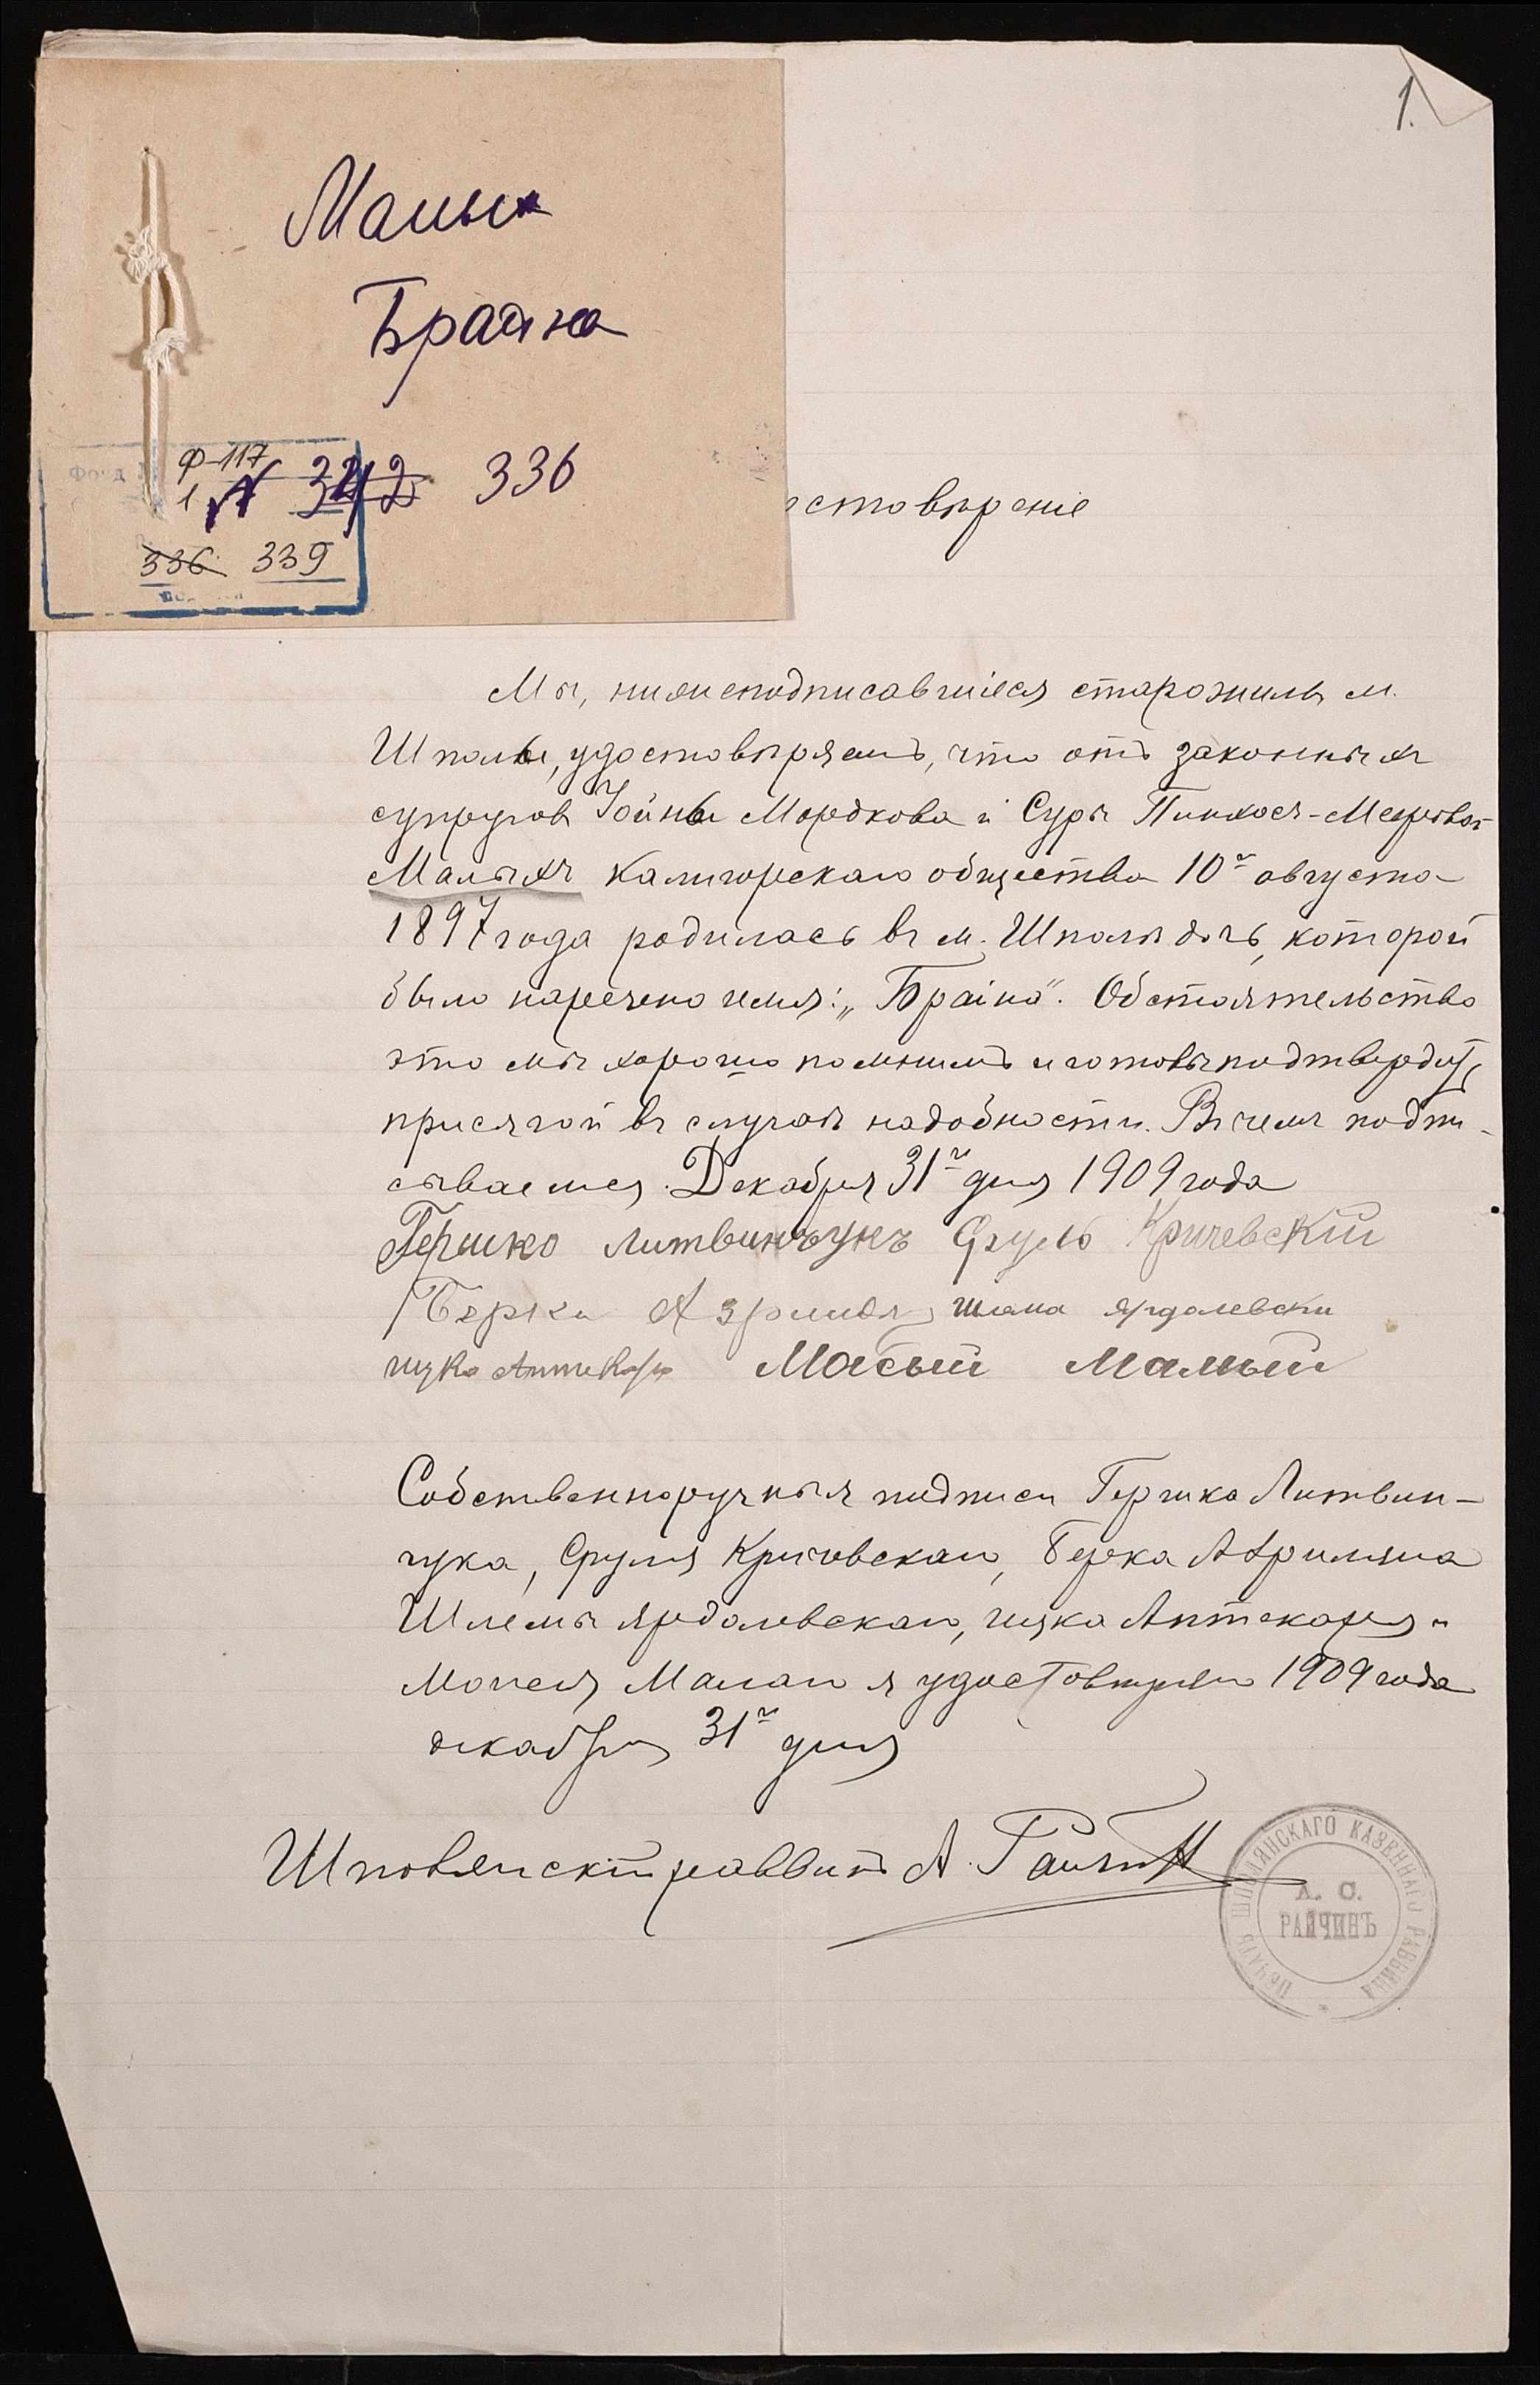 1.
Малых
Брайна
Ф-117
1 N 342 336
336 339
стовѣреніе
Мы, нижеподписавшіеся старожилы м.
Шполы, удостовѣряемъ, что отъ законныхъ
супруговъ Іойны Мордкова и Суры Пинхось-Мееровой
Малыхъ Калигорскаго общества 10го августа
1897 года родилась въ м. Шполѣ дочь, которой
было наречено имя: „Браина". Обстоятельство
это мы хорошо помнимъ и готовы подтвердить
присягой въ случаѣ надобности. Въ чемъ подпи-
сываемся. Декабря 31го дня 1909 года
Гершко Литвинчукъ Сруль Кричевскій
Берко Шлема Ярдолевски
Аптекарь Малый
Собственноручныя подписи Гершка Литвин-
чука, Сруля Кричевскаго, Берка
Шлемы Ярдолевскаго, Аптекаря и
Мошея Малаго я удостовѣряю 1909 года
декабря 31го дня
Шполянскій раввинъ А. Райчинъ
ПЕЧАТЬ ШПОЛЯНСКАГО КАЗЕННАГО РАВВИНА
А. С.
РАЙЧИНЪ